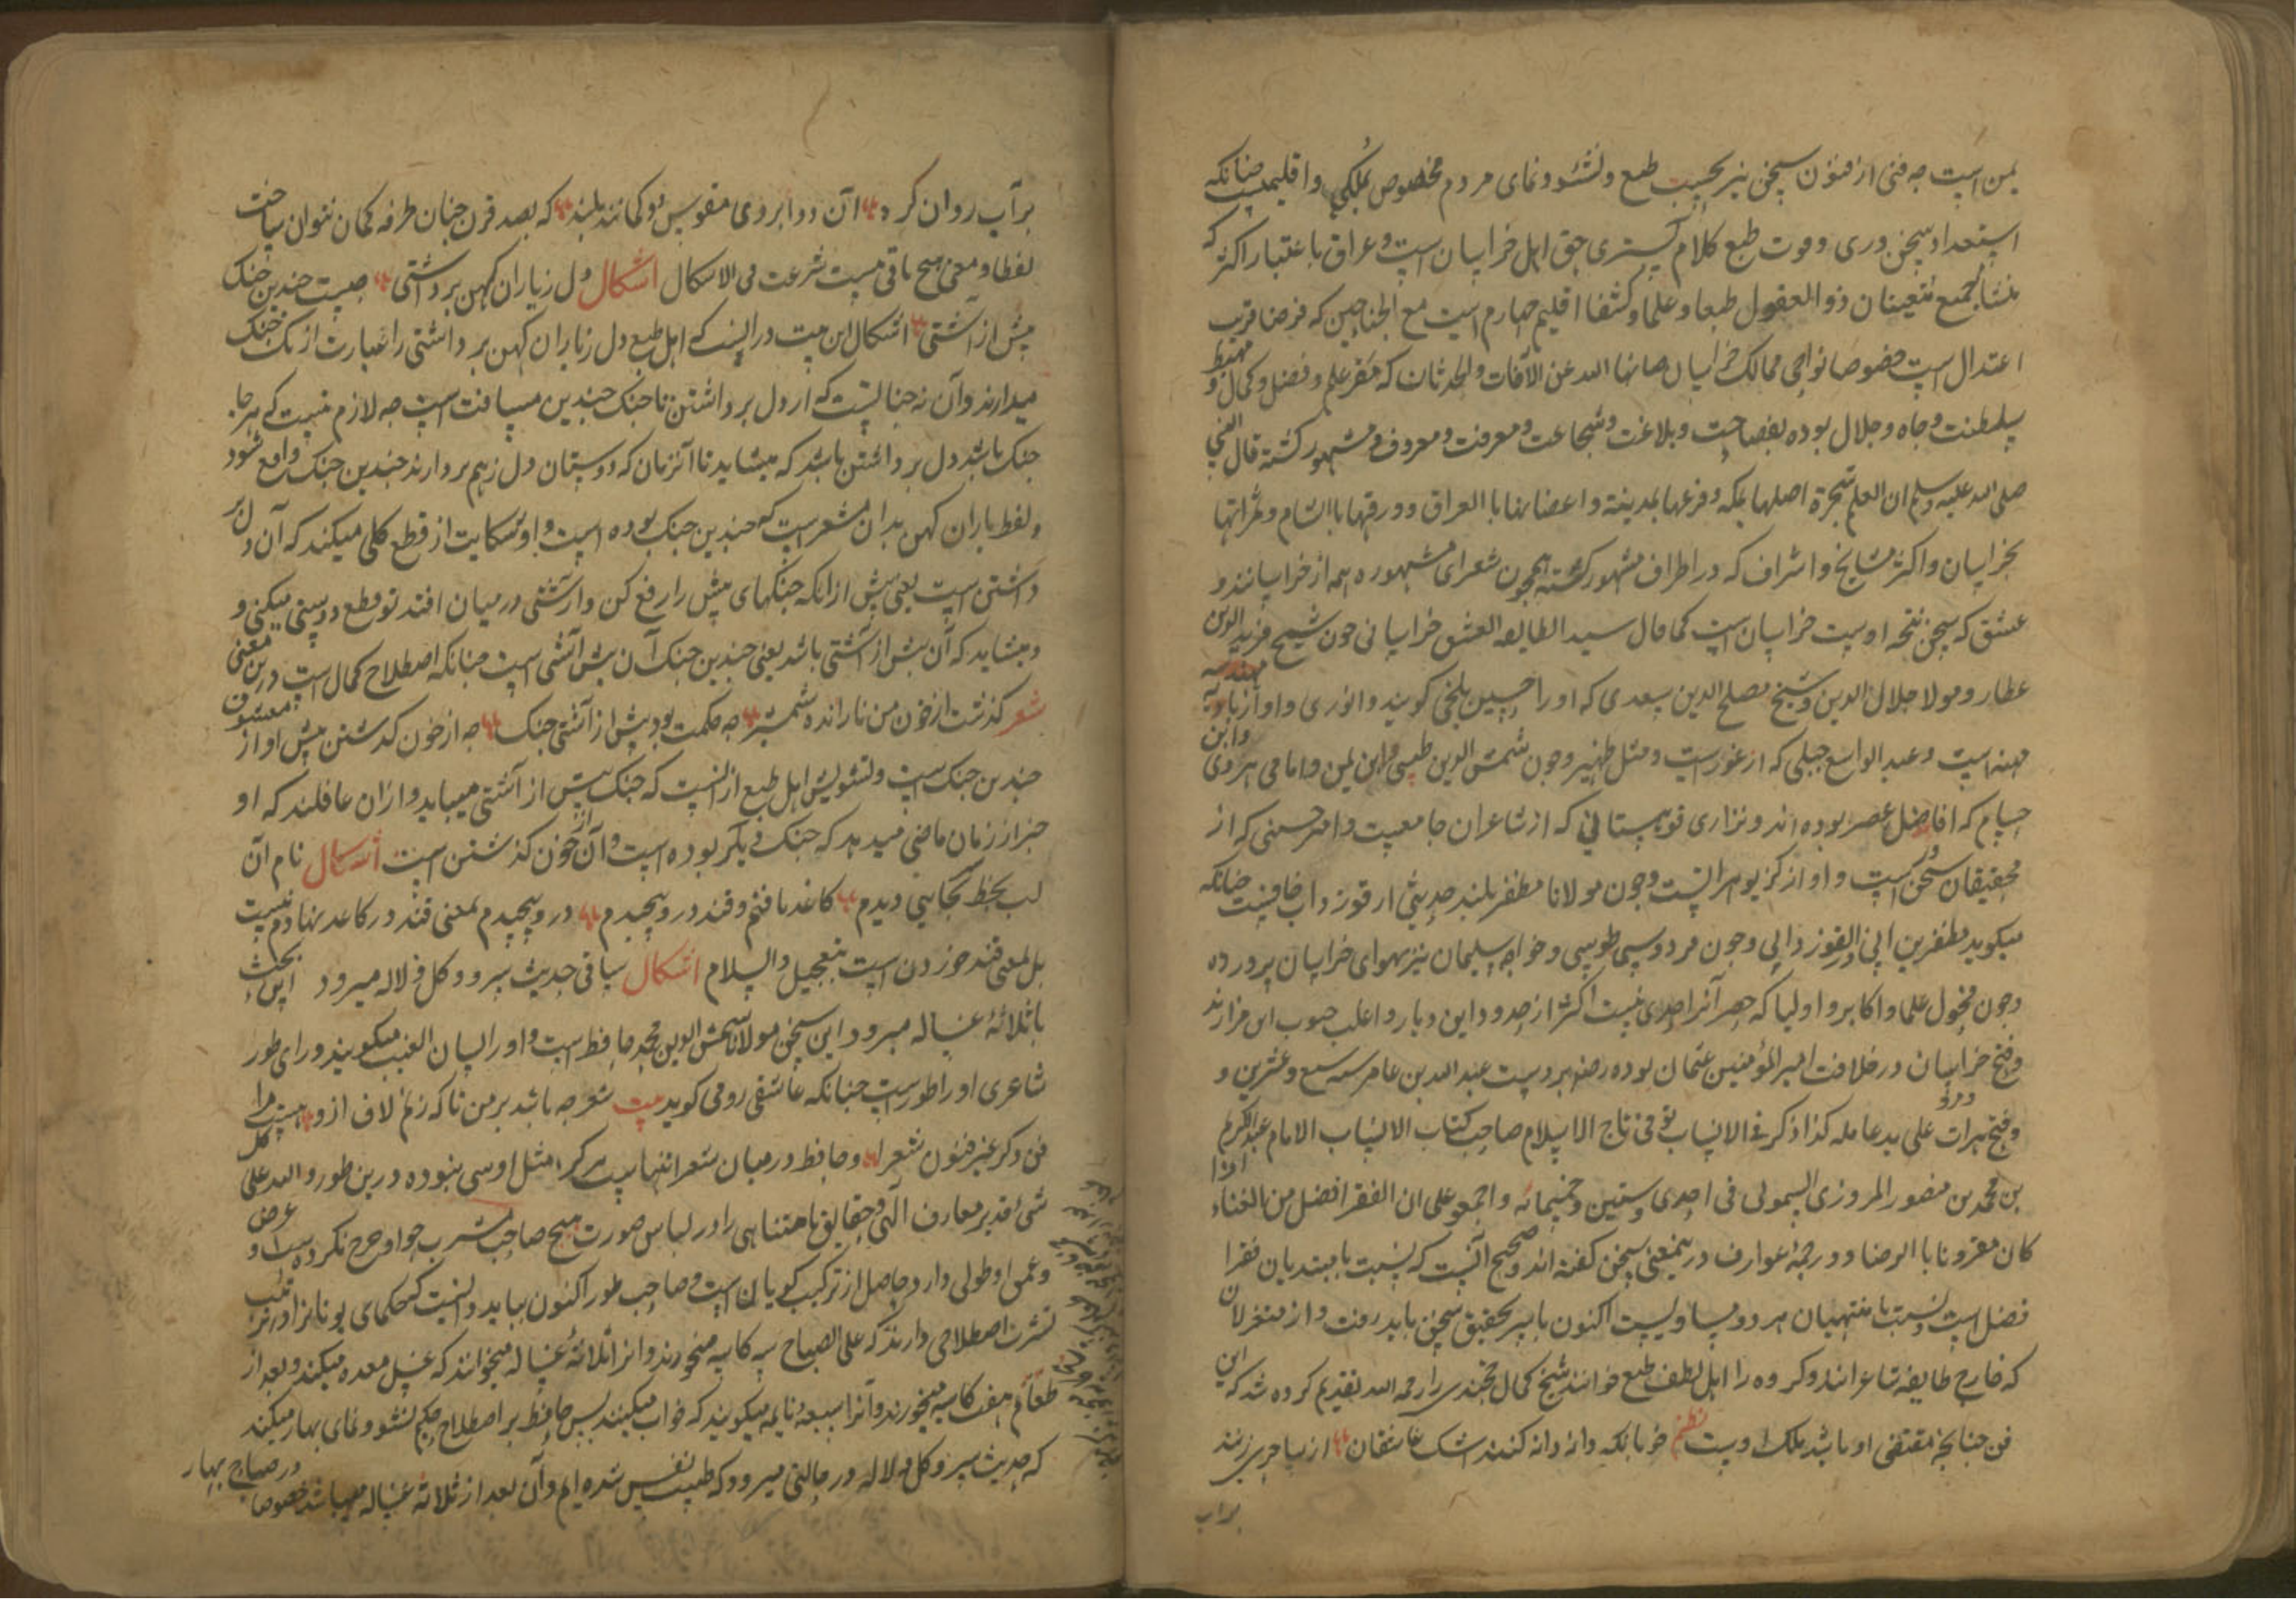 یمن است چه فنی از فنون سخن نیز بحسب طبع و نشو و نمای مردم مخصوص بملکی و اقلیمست چنانکه
استعداد سخن وری و قوت طبع کلام گستری حق اهل خراسان است و عراق با عتبار اکثر که
منشا جمیع متعینان ذو العقول طبعا و علما و کشفا اقلیم چهارم است مع الجناحین که فرضا قریب
اعتدال است خصوصا نواحی ممالک خراسان صانها الله عن الآفات والحدثان که مقر علم و فضل و کمال و مهبط
سلطنت و جاه و جلال بوده بفصاحت و بلاغت و شجاعت و معرفت و معروف و مشهور گشته قال النبی
صلی الله علیه وسلم ان العلم شجرة اصلها بمکه و فرعها بمدینة و اعضانها با العراق و ورقها با الشام و ثمراتها
بخراسان و اکثر مشایخ و اشراف که در اطراف مشهور گشته همچون شعرای مشهوره همه از خراسانند و
عشق که سخن نتیجه اوست خراسان است کما قال سید الطایفه العشق خراسانی چون شیخ فرید الدین
عطار و مولا جلال الدین و شیخ مصلح الدین سعدی که او را حسین بلخی گویند و انوری و او از باورد
مهنه است و عبد الواسع جبلی که از غورست و مثل ظهیر و چون شمس الدین طبسی و ابن یمین و امامی هروی و ابن
حسام که افاضل عصر بوده اند و نزاری قوهستانی که از شاعران جامعیت و امیر حسینی که از
محقیقان سخن است و او از کزیو هراتست و چون مولانا مظفر بلند حدیثی از قوز داب خافیست چنانکه
میکوید مظفرین اینی القوز دابی و چون فردوسی طوسی و خواجه سلیمان نیز بهوای خراسان پرورده
و چون فحول علما و اکابر و اولیا که حصر آنرا حدی نیست اکثر از حدود این دیار و اغلب صوب این مزارند
و فتح خراسان در خلافت امیر المؤمنین عثمان بوده رضه بر دست عبد الله بن عامر سنه سبع و عشرین و
و فتح هرات علی ید عامله کذا ذکر فی الانساب توفی تاج الاسلام صاحب کتاب الانساب الامام عبد الکریم
بن محمد بن منصور المروزی السمولی فی احدی و ستین و خمسمائه و اجمعو علی ان الفقر افضل من الغناء اذا
کان مقرونا با الرضا و در ترجمۀ عوارف در ینمعنی سخن گفته اند و صحیح آنست که نسبت با مبتدیان فقرا
فضل است و نسبت با منتهیان هر دو مساویست اکنون با سر تحقیق سخن باید رفت و از متغزلان
که خارج طایفه شاعرانند و کروه را اهل لطف طبع خوانند شیخ کمال خجندی را رحمه الله تقدیم کرده شد که این
فن چنانچه مقتضی او باشد ملک اوست نظم خوبانکه دانه دانه کنند اشک عاشقان از ساحری زنند
براب
برآب روان کرده آن دو ابروی مقوس دو کمانند بلند که بصد قرن چنان طرفه کمان نتوان ساخت
لفظا و معنی هیچ باقی نیست شرعت فی الاشکال اشکال دل زیاران کهن برداشتی چیست چندین جنک
پیش از آشتی اشکال این بیت در اینست که اهل طبع دل زیاران کهن برداشتی را عبارت از یک جنک
میدارند و آن نه چنانست که از دل برداشتن تا جنک چندین مسافت است چه لازم نیست که هر جا
جنک باشد دل برداشتن باشد که میشاید تا آنزمان که دوستان دل زهم بردارند چندین جنک واقع شود
و لفظ یاران کهن بدان مشعرست که چندین جنک بوده است و او شکایت از قطع کلی میکند که آن دل بر
داشتن است یعنی پیش ازانکه جنکهای پیش را رفع کن و آشتی در میان افتد تو قطع دوستی میکنی و
و میشاید که آن پیش از آشتی باشد یعنی چندین جنک آن پیش آشتی است چنانکه اصطلاح کمال است درین معنی
شعر گذشت از خون من نارانده شمشیر چه حکمت بود پیش از آشتی جنک چه از خون گذشتن پیش او از معشوق
چندین جنک است و تشویش اهل طبع ازانست که جنک پیش از آشتی میباید و ازان غافلند که او
خبر از زمان ماضی میدهد که جنک دیگر بوده است و آن از خون گذشتن است اشکال نام آن
لب بخط بجایی دیدم کاغذ یافتم و قند در و پیچیدم در و پیچیدم بمعنی قند در کاعد نهادم نیست
بل بمعنی قند خوردن است بتعجیل والسلام اشکال ساقی حدیث سرو و کل و لاله میرود این بحث
با ثلاثۀ غساله میرود این سخن مولانا شمس الدین محمد حافظ است و او را لسان الغیب میکویند ورای طور
شاعری او را طورست چنانکه عاشقی رومی کوید بیت شعر چه باشد بر من تا که زنم لاف ازو هست مرا
فن دکر غیر فنون شعرا و حافظ در میان شعرا تنهاست هرکز مثل او کسی نبوده درین طور و الله علی کل
شئ قدیر معارف الهی و حقایق نامتناهی را در لباس صورت هیچ صاحب مشرب چو او خرج نکرده است و عرض
و عمق او طولی دارد حاصل از ترکیب کویا لن است و صاحب طور اکنون بیاید دانست که حکمای یونانرا در ترتیب
تشرب اصطلاحی دارند که علی الصباح سه کاسه میخورند و آنرا ثلاثۀ غساله میخوانند که غسل معده میکند و بعد از
طعام هفت کاسه میخورند و آنرا سبعۀ نایمه میکویند که خواب میکنند پس حافظ بر اصطلاح حکیم نشو و نمای بهار میکند
که حدیث سرو و کل و لاله در حالتی میرود که طیب نفس شده ایم و آن بعد از ثلاثۀ غساله میباشد خصوصا در صباح بهار